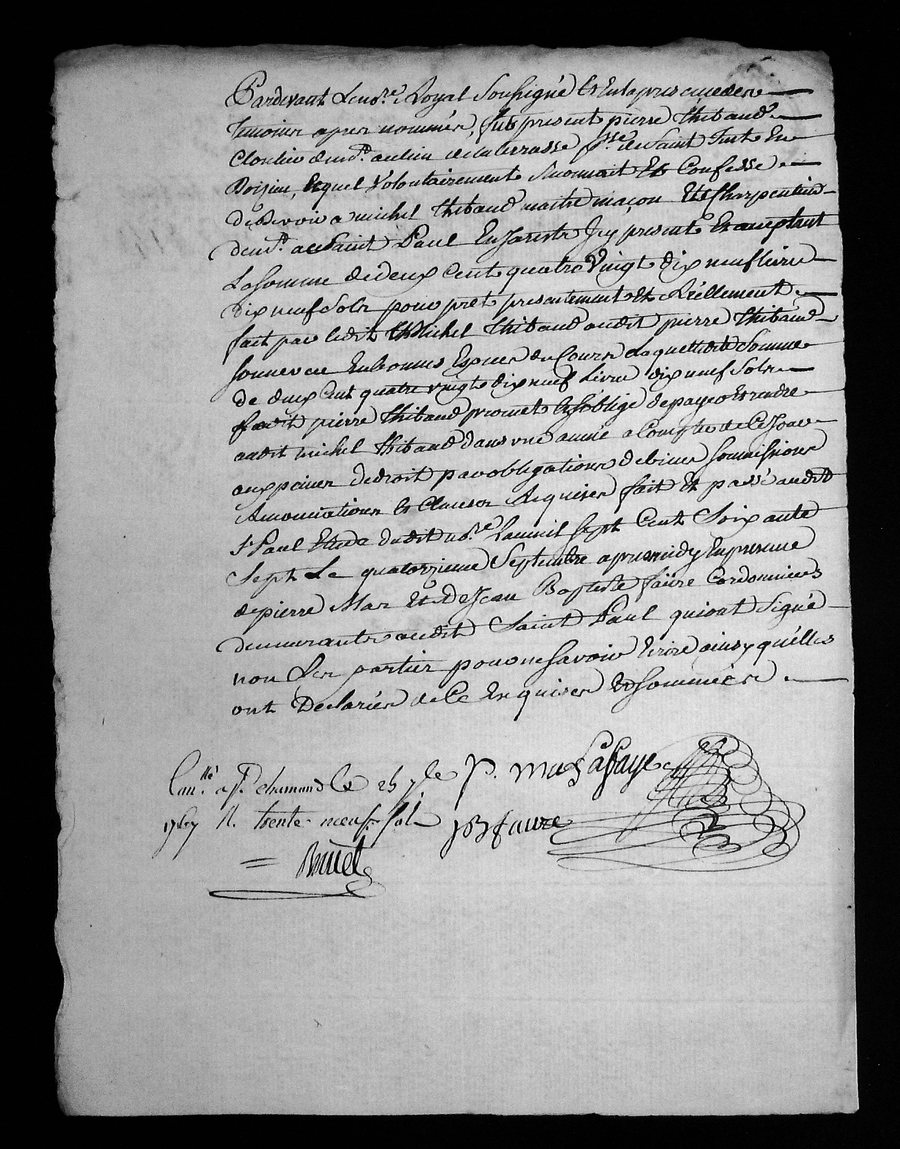 Pardevant Le no.re Royal Soussigné Et En la presence des
temoins apres nommés, fut present pierre thibaud
Cloutier dem.t au lieu de la terrasse p.sse de Saint Just En
Doizieu, Lequel volontairement Reconnait Et Confesse
de devoir a michel thibaud maitre maçon Et Charpentier
dem.t a Saint Paul En Jarestz Icy present Et acceptant
La somme de deux cent quatre vingt dix neuf livres
dix neuf Sols pour pret presentement Et Réellement
fait par ledit Michel thibaud audit pierre thibaud
En bonnes Especes du Cours Laquelle ditte Somme
de deux Cent quatre vingts dix neuf Livres dix neuf Sols
ledit pierre thibaud promet Et s'oblige de payer Et rendre
audit michel thibaud dans une année a Compter de Ce Jour
aux peines de droit par obligations de biens soumissions
Renonciations Et Clauses Requises fait Et passé audit
S.t Paul Etude dudit no.re L'an mil Sept Cent Soixante
Sept Le quatorzieme Septembre apres midy En presence
de pierre Mas Et de Jean Baptiste faure Cordonniers
demeurants audit Saint Paul qui ont Signé
non Les parties pour ne savoir Ecrire ainsy qu'elles
ont Declarées de Ce Enquises Et sommées
P. mas Lafaye
Con.llé a S.t chamond le 25 7.bre
1767 R. trente neuf sols
JB faure